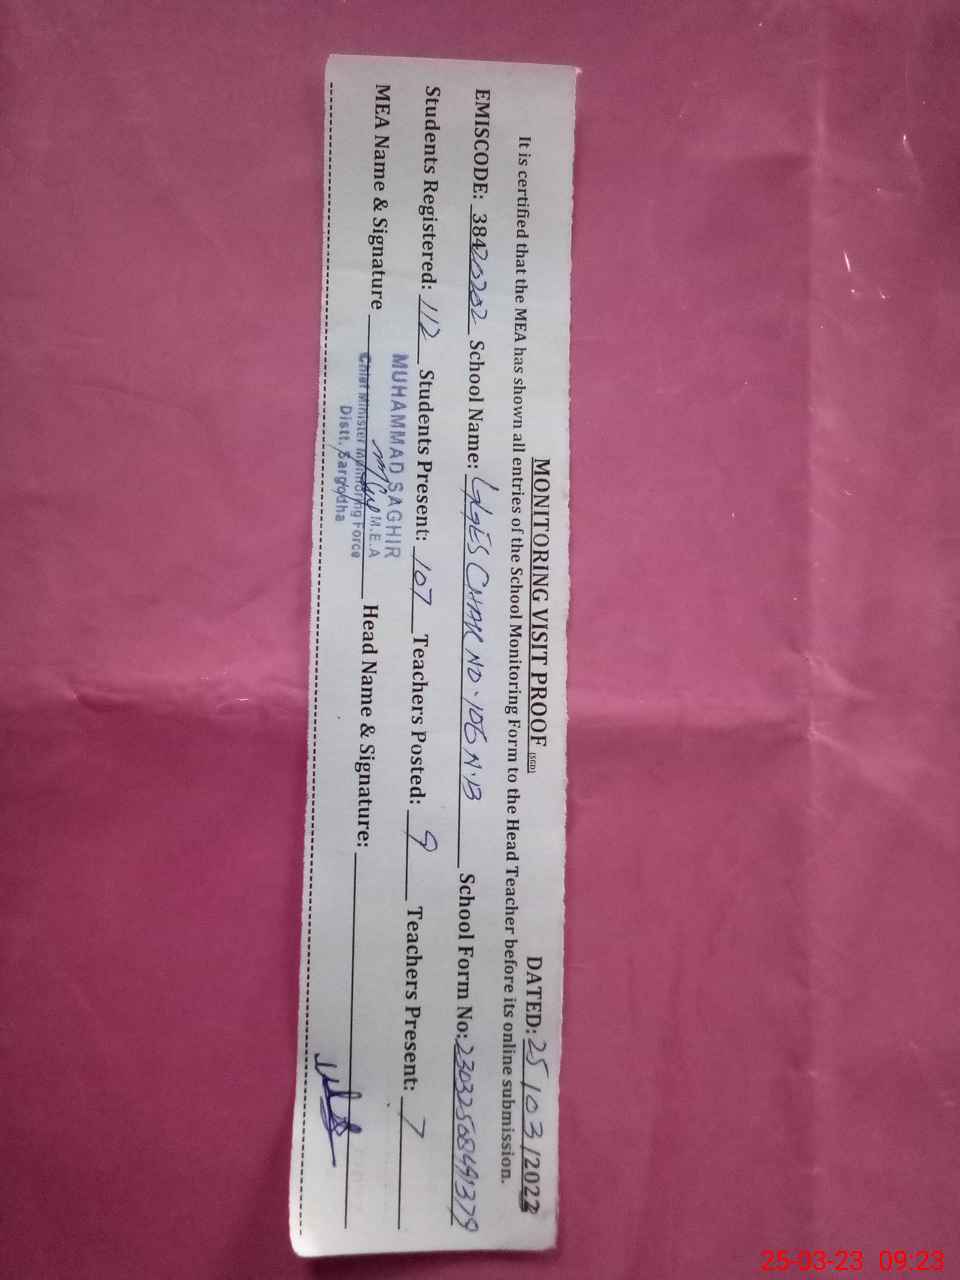 MONITORING VISIT PROOF (SGD) DATED: 25/03/2022
It is certified that the MEA has shown all entries of the School Monitoring Form to the Head Teacher before its online submission.
EMISCODE: 38420202 School Name: GGES CHAK NO.106 N.B School Form No: 23032568491379
Students Registered: 112 Students Present: 107 Teachers Posted: 9 Teachers Present: 7
MUHAMMAD SAGHIR
M.E.A
MEA Name & Signature Head Name & Signature:
Chief Minister Monitoring Force
Distt. Sargodha
25-03-23 09:23